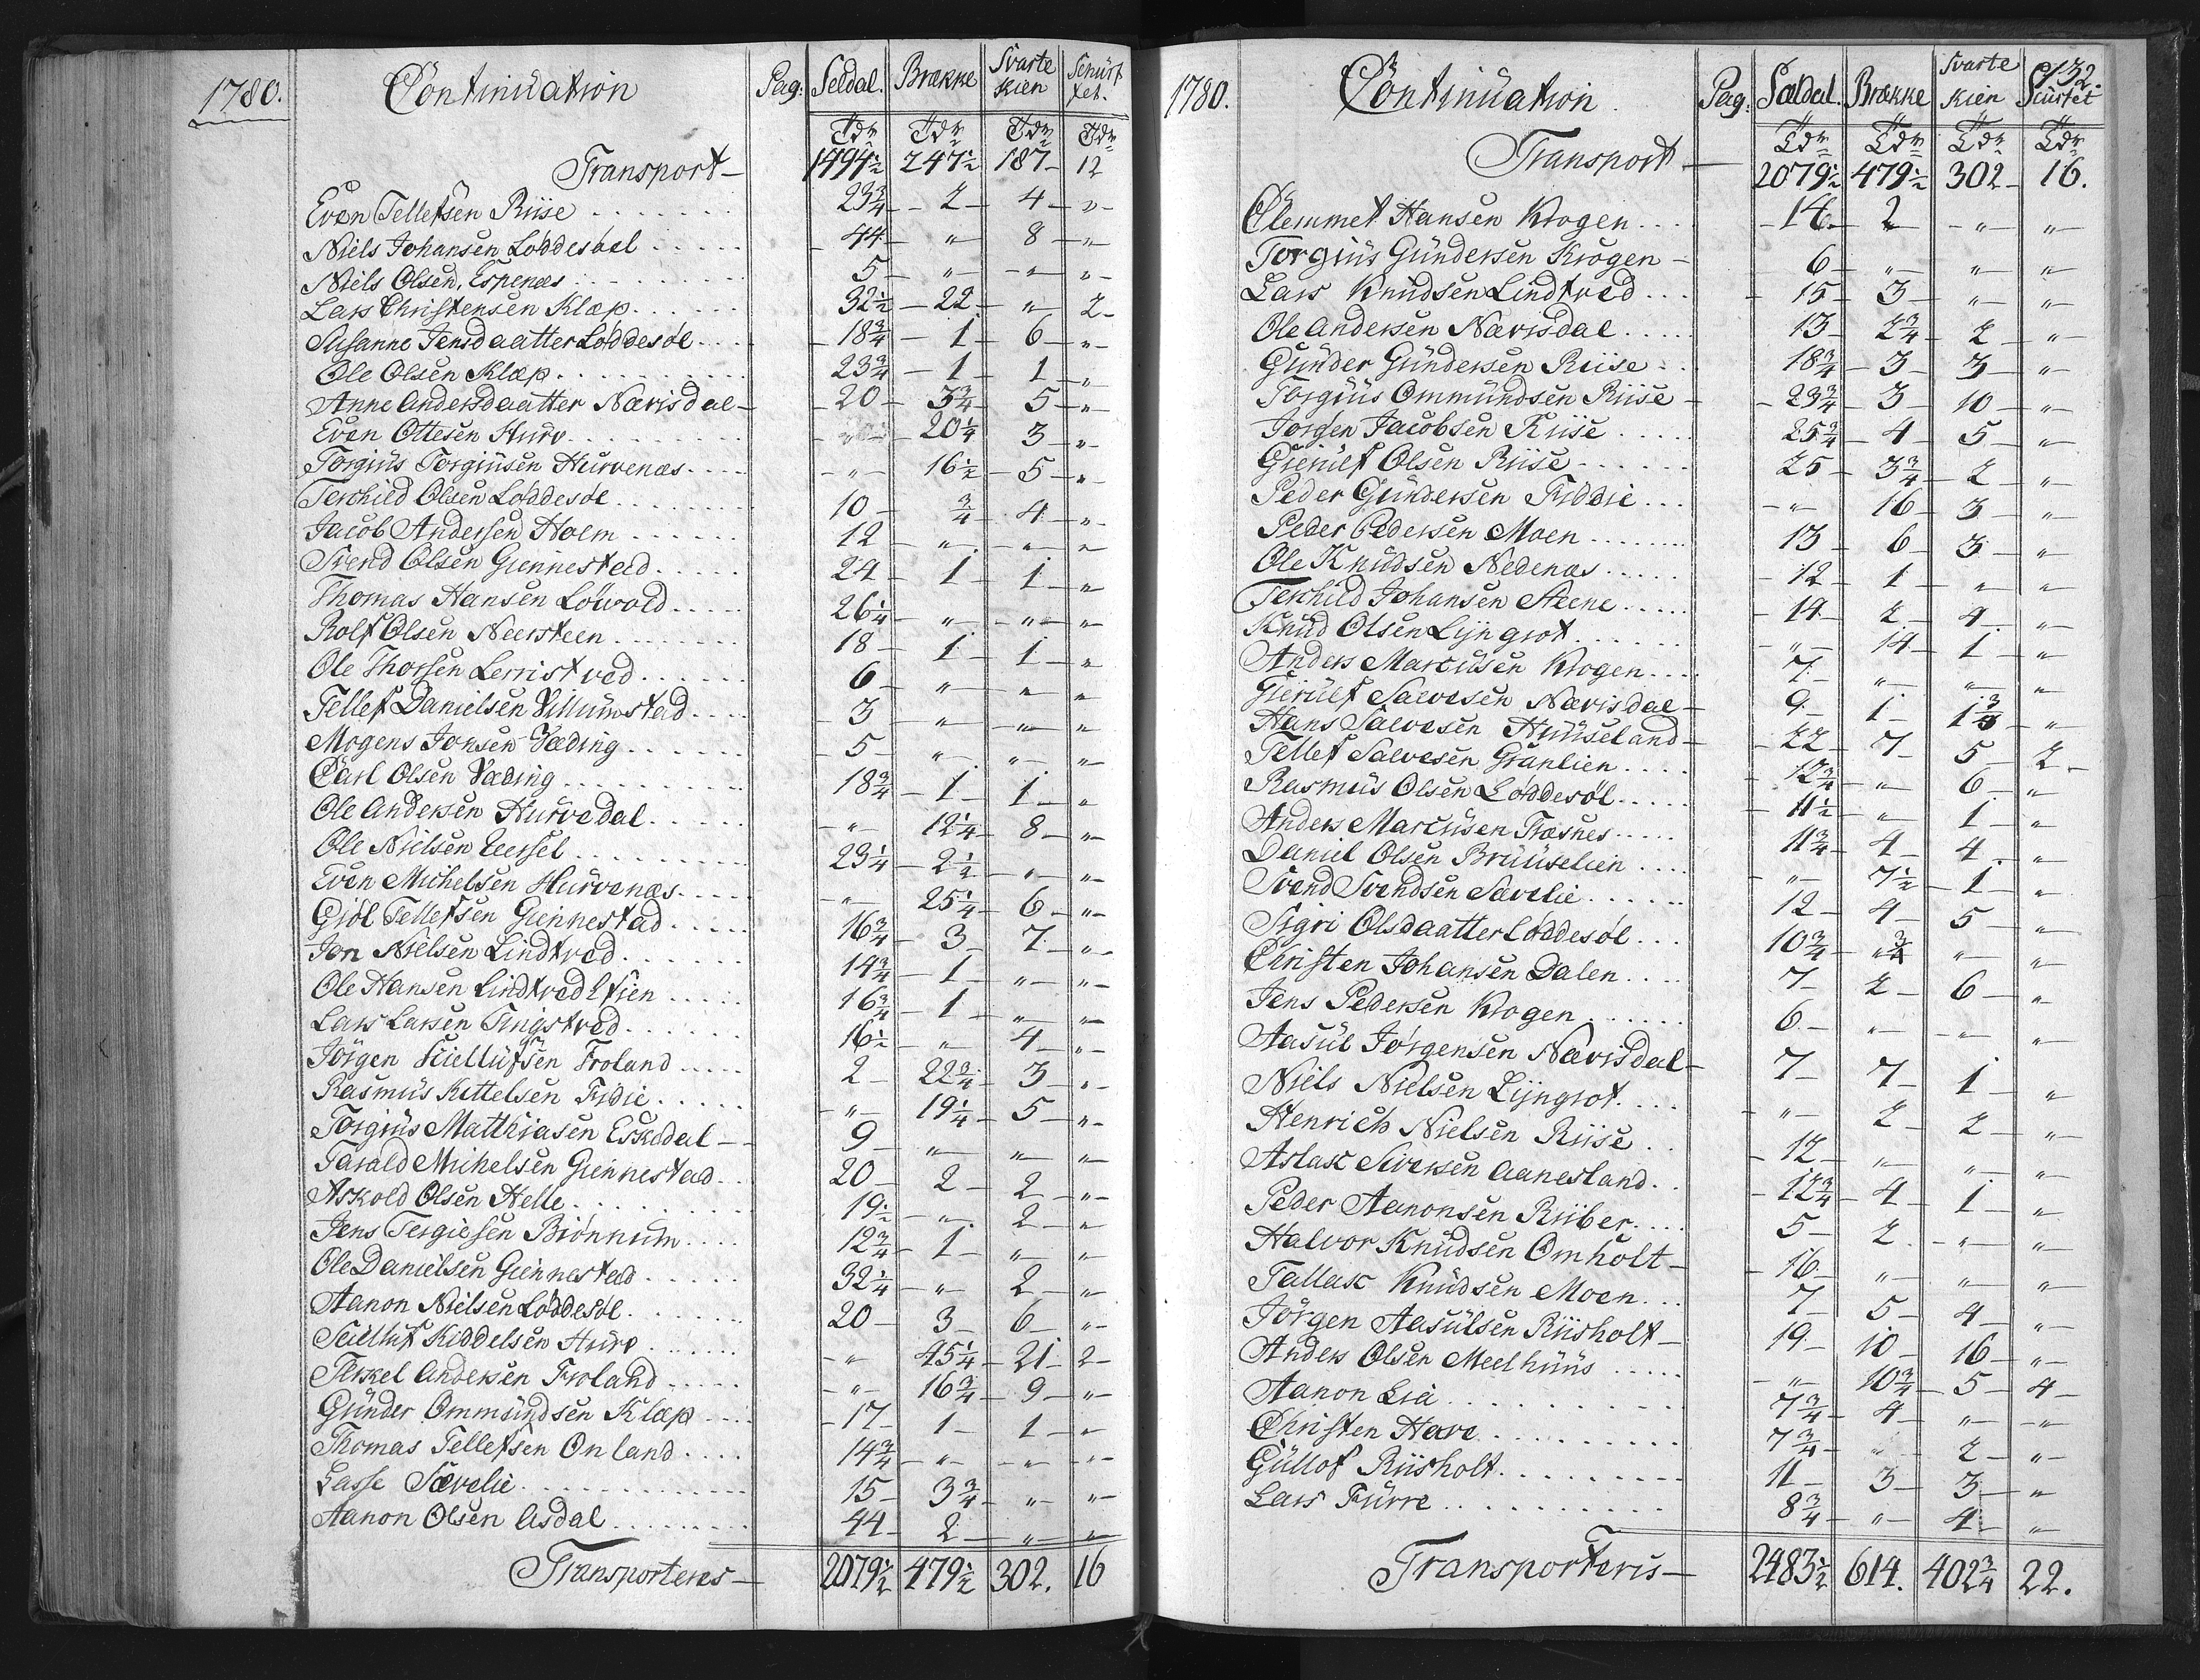 1780. Continuation Pag: Seldal. Brække Svarte kien Schürf tet.
Tdr Tdr Tdr Tdr
Transport— 1494½ 247½ 187— 12
Even Tellefsen Riise . . . . . 23¾— 2— 4— "—
Niels Johansen Løddesøel . . . . . 44— "— 8— "—
Niels Olsen, Espenæs . . . . . 5— "— "— "—
Lars Christensen Klæp . . . . . 32½— 22— "— 2—
Susanne Jensdaatter Løddesøl . . . 18¾— 1— 6— "—
Ole Olsen Klæp . . . . . 23¾— 1— 1— "—
Anne Andersdaatter Nævisdal— 20— 3¾— 5— "—
Even Ottesen Hurv . . . . . "— 20¼ 3— "—
Torgiüs Torgiüsen Hürvenæs . . . . "— 16½— 5— "—
Terchild Olsen Løddesøl . . . . . 10— ¾ 4— "—
Jacob Andersen Holm . . . . . 12— "— "— "—
Svend Olsen Giennestad . . . . . 24— 1— 1— "—
Thomas Hansen Løwold . . . . . 26¼— "— "— "—
Rolf Olsen Neersteen . . . . . 18— 1— 1— "—
Ole Thorsen Lerristved . . . . . 6— "— "— "—
Tellef Danielsen Villumstad . . . . 3— "— "— "—
Mogens Jonsen Væding . . . . . 5— "— "— "—
Carl Olsen Væding . . . . . 18¾— 1— 1— "—
Ole Andersen Hürvedal . . . . . "— 12¼— 8— "—
Ole Nielsen Eersel . . . . . 23¼— 2½— "— "—
Even Michelsen Hürvenæs . . . . "— 25¼— 6— "—
Giøl Tellefsen Giennestad . . . . . 16¾— 3— 7— "—
Jon Nielsen Lindtved . . . . . 14¾— 1— "— "—
Ole Hansen Lindtved Eien . . . . . 16¾— 1— "— "—
Lars Larsen Tingstved . . . . . 16½ "— 4— "—
Jörgen Kiellüfsen Froland . . . . . 2— 22¾— 3— "—
Rasmüs Kittelsen Fidie . . . . . "— 19¼— 5— "—
Torgiüs Matthiasen Eskedal— 9— "— "— "—
Tarald Michelsen Giennestad . . 20— 2— 2— "—
Askold Olsen Helle . . . . . 19½— "— 2— "—
Jens Tergiesen Biønnum . . . . 12¾— 1— "— "—
Ole Danielsen Giennestad . . . . . 32¼— "— 2— "—
Aanon Nielsen Løddesøl . . . . . 20— 3— 6— "—
Sciellüf Kiddelsen Hurv . . . . . "— 45¼— 21— 2—
Terkel Andersen Froland . . . . . "— 16¾— 9— "—
Günder Ommündsen Klæp . . . . 17— 1— 1— "—
Thomas Tellefsen Onland . . . . 14¾— "— "— "—
Lasse Sævelie . . . . . 15— 3¾— "— "—
Aanon Olsen Asdal . . . . . 44— 2— "— "—
Transporteres— 2079½ 479½ 302. 16
132.
1780. Continüation. Pag: Sældal. Brække Svarte kien Sciürtet
Tdr Tdr Tdr Tdr
Transport— 2079½ 479½ 302— 16.
Clemmet Hansen Krogen . . . . 14— 2— "— "—
Torgiüs Gündersen Krogen— 6— "— "— "—
Lars Knüdsen Lindtved . . . 15— 3— "— "—
Ole Andersen Nævisdal . . . . . 13— 2¾— 2— "—
Günder Gündersen Riise . . 18¾— 3— 3— "—
Torgiüs Ommündsen Riise— 23¾— 3— 10— "—
Jörgen Jacobsen Riise . . . . . 25¾— 4— 5— "—
Gierülf Olsen Riise . . . . . 25— 3¾— 2— "—
Peder Gündersen Fiddie . . . "— 16— 3— "—
Peder Pedersen Moen . . . . . 13— 6— 3— "—
Ole Knüdsen Nedenæs . . . . . 12— 1— "— "—
Terchild Johansen Steene . . . . . 14— 2— 4— "—
Knüd Olsen Lijngrot . . . . . "— 14— 1— "—
Anders Marcüsen Krogen . . . . 7— "— "— "—
Gierülf Salvesen Nævisdal— 9— 1— 1¾— "—
Hans Salvesen Hüüseland— 22— 7— 5— 2—
Tellef Salvesen Granlien . . . . 12¾— "— 6— "—
Rasmüs Olsen Løddesøl . . . . . 11½— "— 1— "—
Anders Marcüsen Træsnes . . . . . 11¾— 4— 4— "—
Daniel Olsen Brüüselien . . . . "— 7½— 1— "—
Svend Svendsen Sævelie . . . . . 12— 4— 5— "—
Sigri Olsdaatter Løddesøl . . . 10¾— ¾— "— "—
Christen Johansen Dalen . . . . 7— 2— 6— "—
Jens Pedersen Krogen . . . . . 6— "— "— "—
Aasül Jørgensen Nævisdal— 7— 7— 1— "—
Niels Nielsen Lijngrot . . . . "— 2— 2— "—
Henrich Nielsen Riise . . 12— "— "— "—
Aslac Siversen Aanesland . . 12¾— 4— 1— "—
Peder Aanonsen Riiber . . . . 5— 2— "— "—
Halvor Knüdsen Omholt— 16— "— "— "—
Tallac Knüdsen Moen . . . 7— 5— 4— "—
Jörgen Aasülsen Riisholt— 19— 10— 16— "—
Anders Olsen Meelhüüs . . . . . "— 10¾— 5— 4—
Aanon Lia . . . . . 7¾— 4— "— "—
Christen Have . . . . . 7¾— "— 2— "—
Güllof Riisholt . . . . . 11— 3— 3— "—
Lars Fürre . . . . . 8¾— "— 4— "—
Transporteris— 2483½ 614. 402¾ 22.